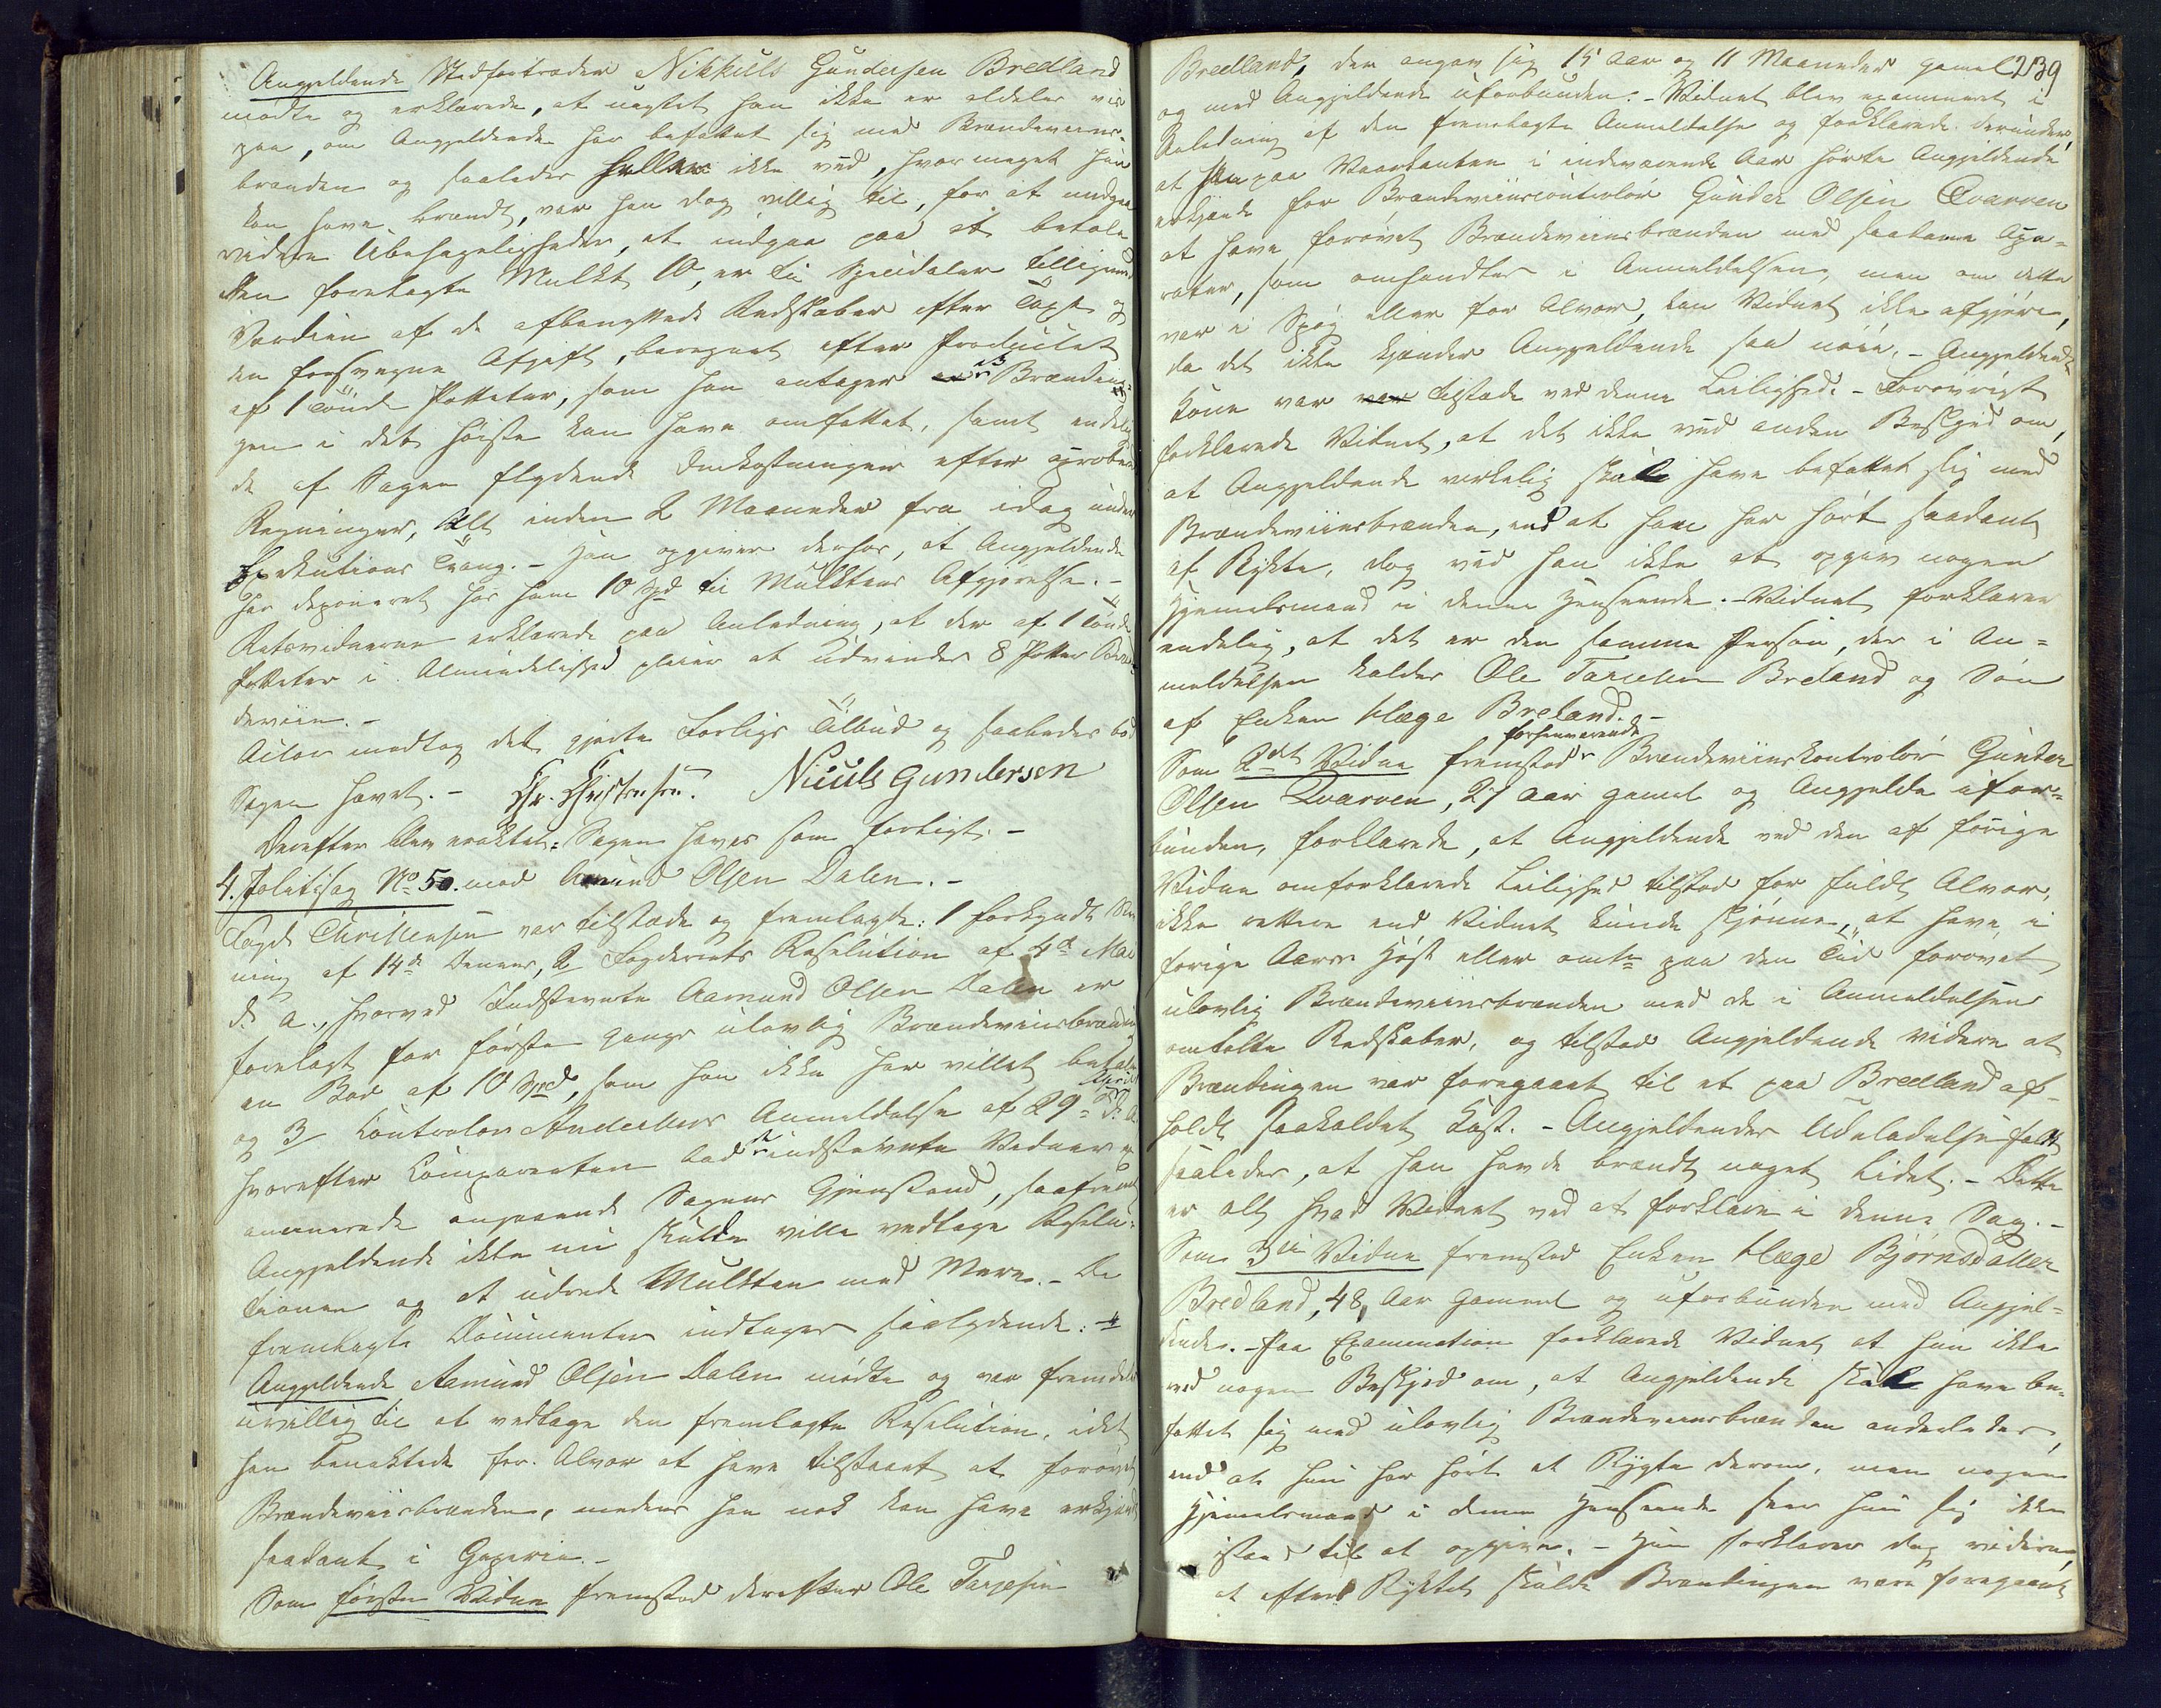 Angjeldende Stedfortræder Nikkuls Gundersen Bredland
mødte og erklærede, at uagtet han ikke er aldeles vis
paa, om Angjeldende har befattet sig med Brændeviins-
brænden og saaledes heller ikke véd, hvor meget han
kan have brændt, var han dog villig til, for at undgaa
videre Ubehageligheder, at indgaa paa at betale
den forelagte Mulkt 10, er ti Speciedaler tilligemed
Værdien af de afbenyttede Redskaber efter Taxt og
den forsvegne Afgift, beregnet efter Productet
af 1 Tønde Poteter, som han antager at Brændin-
gen i det høieste kan have omfattet, samt endelig
de af Sagen flydende Omkostninger efter approberede
Regninger, Alt inden 2 Maaneder fra idag under
Exekutions Tvang. - Han opgiver derhos, at Angjeldende
har deponeret hos ham 10 Spd til Mulktens Afgjørelse. -
Retsvidnerne erklærede paa Anledning, at der af 1 Tønde
Poteter i Almindelighed pleier at udvindes 8 Potter Bræn-
deviin. -
Actor modtog det gjorte Forligs Tilbud og saaledes bød
Sagen hævet. - Chr. Christensen. Niculs Gundersen
Derefter blev eraktet: Sagen hæves som forligt. -
4. Politisag No 50. mod Amund Olsen Dalen. -
Foged Christensen var tilstæde og fremlagde: 1 forkyndt Stev-
ning af 14de dennes, 2 Fogderiets Resolution af 4de Mai
d. A., hvorved Indstevnte Aamund Olsen Dalen er
forelagt for første Gangs ulovlig Brændeviinsbrænding
en Bod af 10 Spd, som han ikke har villet betale
og 3 Controlør Andersens Anmeldelse af 29de April d. A.
hvorefter Comparenten bad indstevnte Vidner ex-
aminerede angaaende Sagens Gjenstand, saafremt
Angjeldende ikke nu skulde ville vedtage Resolu-
tionen og at udrede Mulkten med Mere. - De
fremlagte Documenter indtages saalydende: -
Angjeldende Aamund Olsen Dalen mødte og var fremdeles
uvillig til at vedtage den fremlagte Resolution, idet
han benektede for Alvor at have tilstaaet at forøvet
Brændeviinsbrænden, medens han nok kan have erkjendt
saadant i Gjæverie. -
Som første Vidne fremstod derefter Ole Tarjesen
239
Bredland, der angav sig 15 Aar og 11 Maaneder gamel
og med Angjeldende uforbunden. - Vidnet blev examineret i
Anledning af den fremlagte Anmeldelse og forklarede derunder,
at han paa Vaarkanten i indeværende Aar hørte Angjeldende
erkjende for Brændeviinscontrolør Gunder Olsen Tvarven
at have forøvet Brændeviinsbrænden med saadanne Apa-
rater, som omhandles i Anmeldelsen, men om dette
var i Spøg eller for Alvor, kan Vidnet ikke afgjøre,
da det ikke kjender Angjeldende saa nøie. - Angjeldendes
Kone var tilstæde ved denne Leilighed. - Forøvrigt
forklarede Vidnet, at det ikke véd anden Beskjed om,
at Angjeldende virkelig skal have befattet sig med
Brændeviinsbrænden, end at han har hørt saadant
af Rykte, dog véd han ikke at opgiv nogen
Hjemelsmand i denne Henseende. - Vidnet forklarer
endelig, at det er den samme Person, der i An-
meldelsen kaldes Ole Tarjesen Breland og Søn
af Enken Hæge Breland. -
Som 2det Vidne fremstod forhenværende Brændeviinskontrolør Gunder
Olsen Tvarven, 27 Aar gamel og Angjeldende ufor-
bunden, forklarede, at Angjeldende ved den af forrige
Vidne omforklarede Leilighed tilstod for fuldt Alvor,
ikke rettere end Vidnet kunde skjønne, at have i
forige Aars Høst eller omtr paa den Tid forøvet
ulovlig Brændeviinsbrænden med de i Anmeldelsen
omtalte Redskaber, og tilstod Angjeldende videre at
Brændingen var foregaaet til et paa Bredland af-
holdt saakaldet Kost. - Angjeldendes Udeladelse faldt
saaledes, at han havde brændt noget Lidet. - Dette
er alt hvad Vidnet ved at forklare i denne Sag. -
Som 3die Vidne fremstod Enken Hæge Bjørnsdatter
Bredland, 48 Aar gammel og uforbunden med Angjel-
dende. - Paa Examination forklarede Vidnet at hun ikke
ved nogen Beskjed om, at Angjeldende skal have be-
fattet sig med ulovlig Brændeviinsbrænden anderledes,
end at hun har hørt et Rygte derom, men nogen
Hjemelsmand i denne Henseende seer hun sig ikke
istand til at opgive. - Hun forklarer dog videre,
at efter Ryktet skulde Brændingen være foregaaet